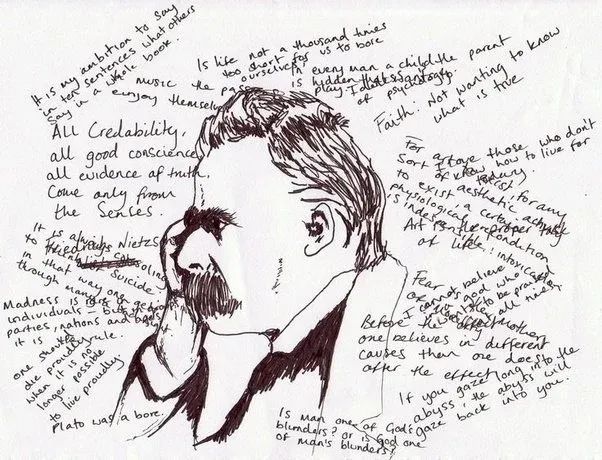 It is my ambition to say
in ten sentences what others
say in a whole book.
Is life not a thousand times
too short for us to bore
ourselves?
music the pas
enjoy themsel
In every man a child
is hidden that
play.
the parent
of psychology.
Faith: Not wanting to know
what is true
All Credability,
all good conscience,
all evidence of truth,
Come only from
the Senses.
For
those who don't
know how to live for
for any
Sort of
aesthetic activity
to exist, a certain
physiological
is indespen
Art is the proper
of life.
intoxication
It is al
to
Nietzs
soling
suicide
in that way one ge
through many
Madness is
in
individuals - but
parties, nations and
it is
rule.
one should
die proudly
when it is no
longer possible
to live proudly
Plato was a bore.
Fear
I cannot believe
god who
to be praised
all the time
Before the effect
one believes in different
causes than one does
after the effect
If you gaze long into the
abyss, the abyss will
gaze back into you.
Is man one of God's
blunders? or is God one
of man's blunders?